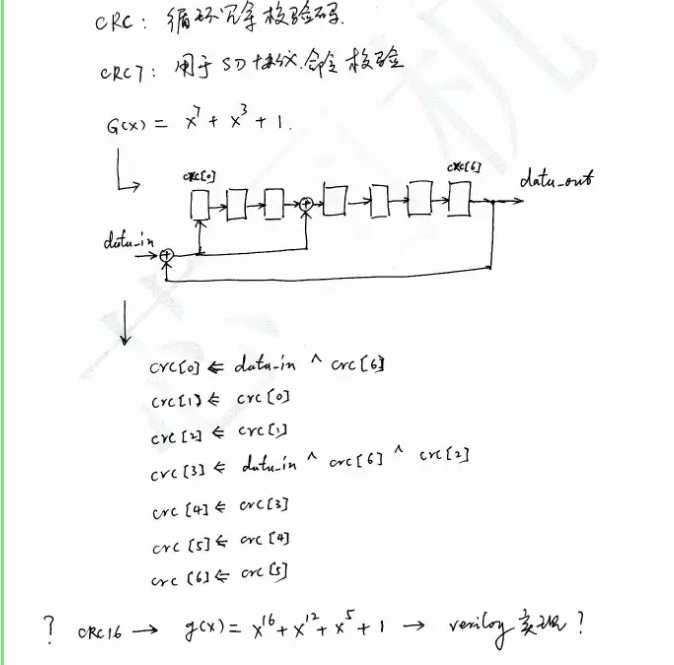 CRC: 循环冗余校验码.
CRC7: 用于SD协议.命令校验
G(x) = x⁷ + x³ + 1.
crc[0] crc[6]
data_out
data_in
crc[0] ⇐ data_in ^ crc[6]
crc[1] ⇐ crc[0]
crc[2] ⇐ crc[1]
crc[3] ⇐ data_in ^ crc[6] ^ crc[2]
crc[4] ⇐ crc[3]
crc[5] ⇐ crc[4]
crc[6] ⇐ crc[5]
? CRC16 → g(x) = x¹⁶ + x¹² + x⁵ + 1 → verilog 实现?